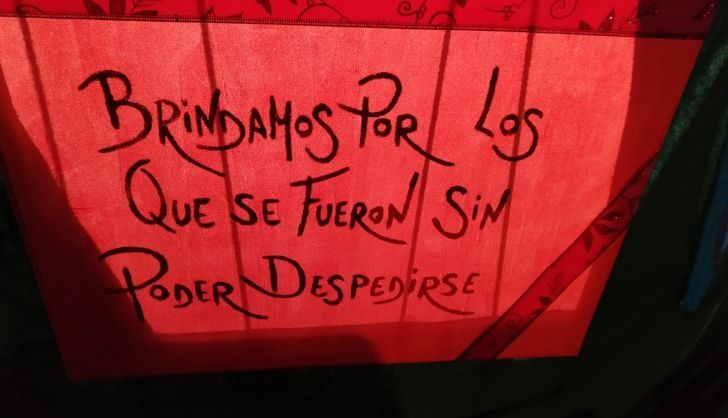 BRINDAMOS POR LOS
QUE SE FUERON SIN
PODER DESPEDIRSE